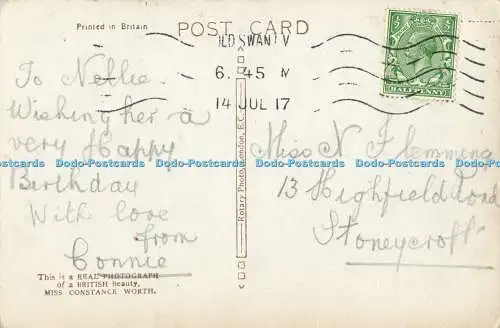 Printed in Britain
POST CARD
OLD SWAN L'V
6. 45
14 JUL 17
HALFPENNY
To Nellie.
Wishing her a
very Happy
Birthday
With love
from
Connie
Miss N Flemming
13 Highfield Road
Stoneycroft
Rotary Photo, London, E.C.
This is a REAL PHOTOGRAPH
of a BRITISH Beauty,
MISS CONSTANCE WORTH.
Dodo-Postcards Dodo-Postcards Dodo-Postcards Dodo-Postcards Dodo-Postcards